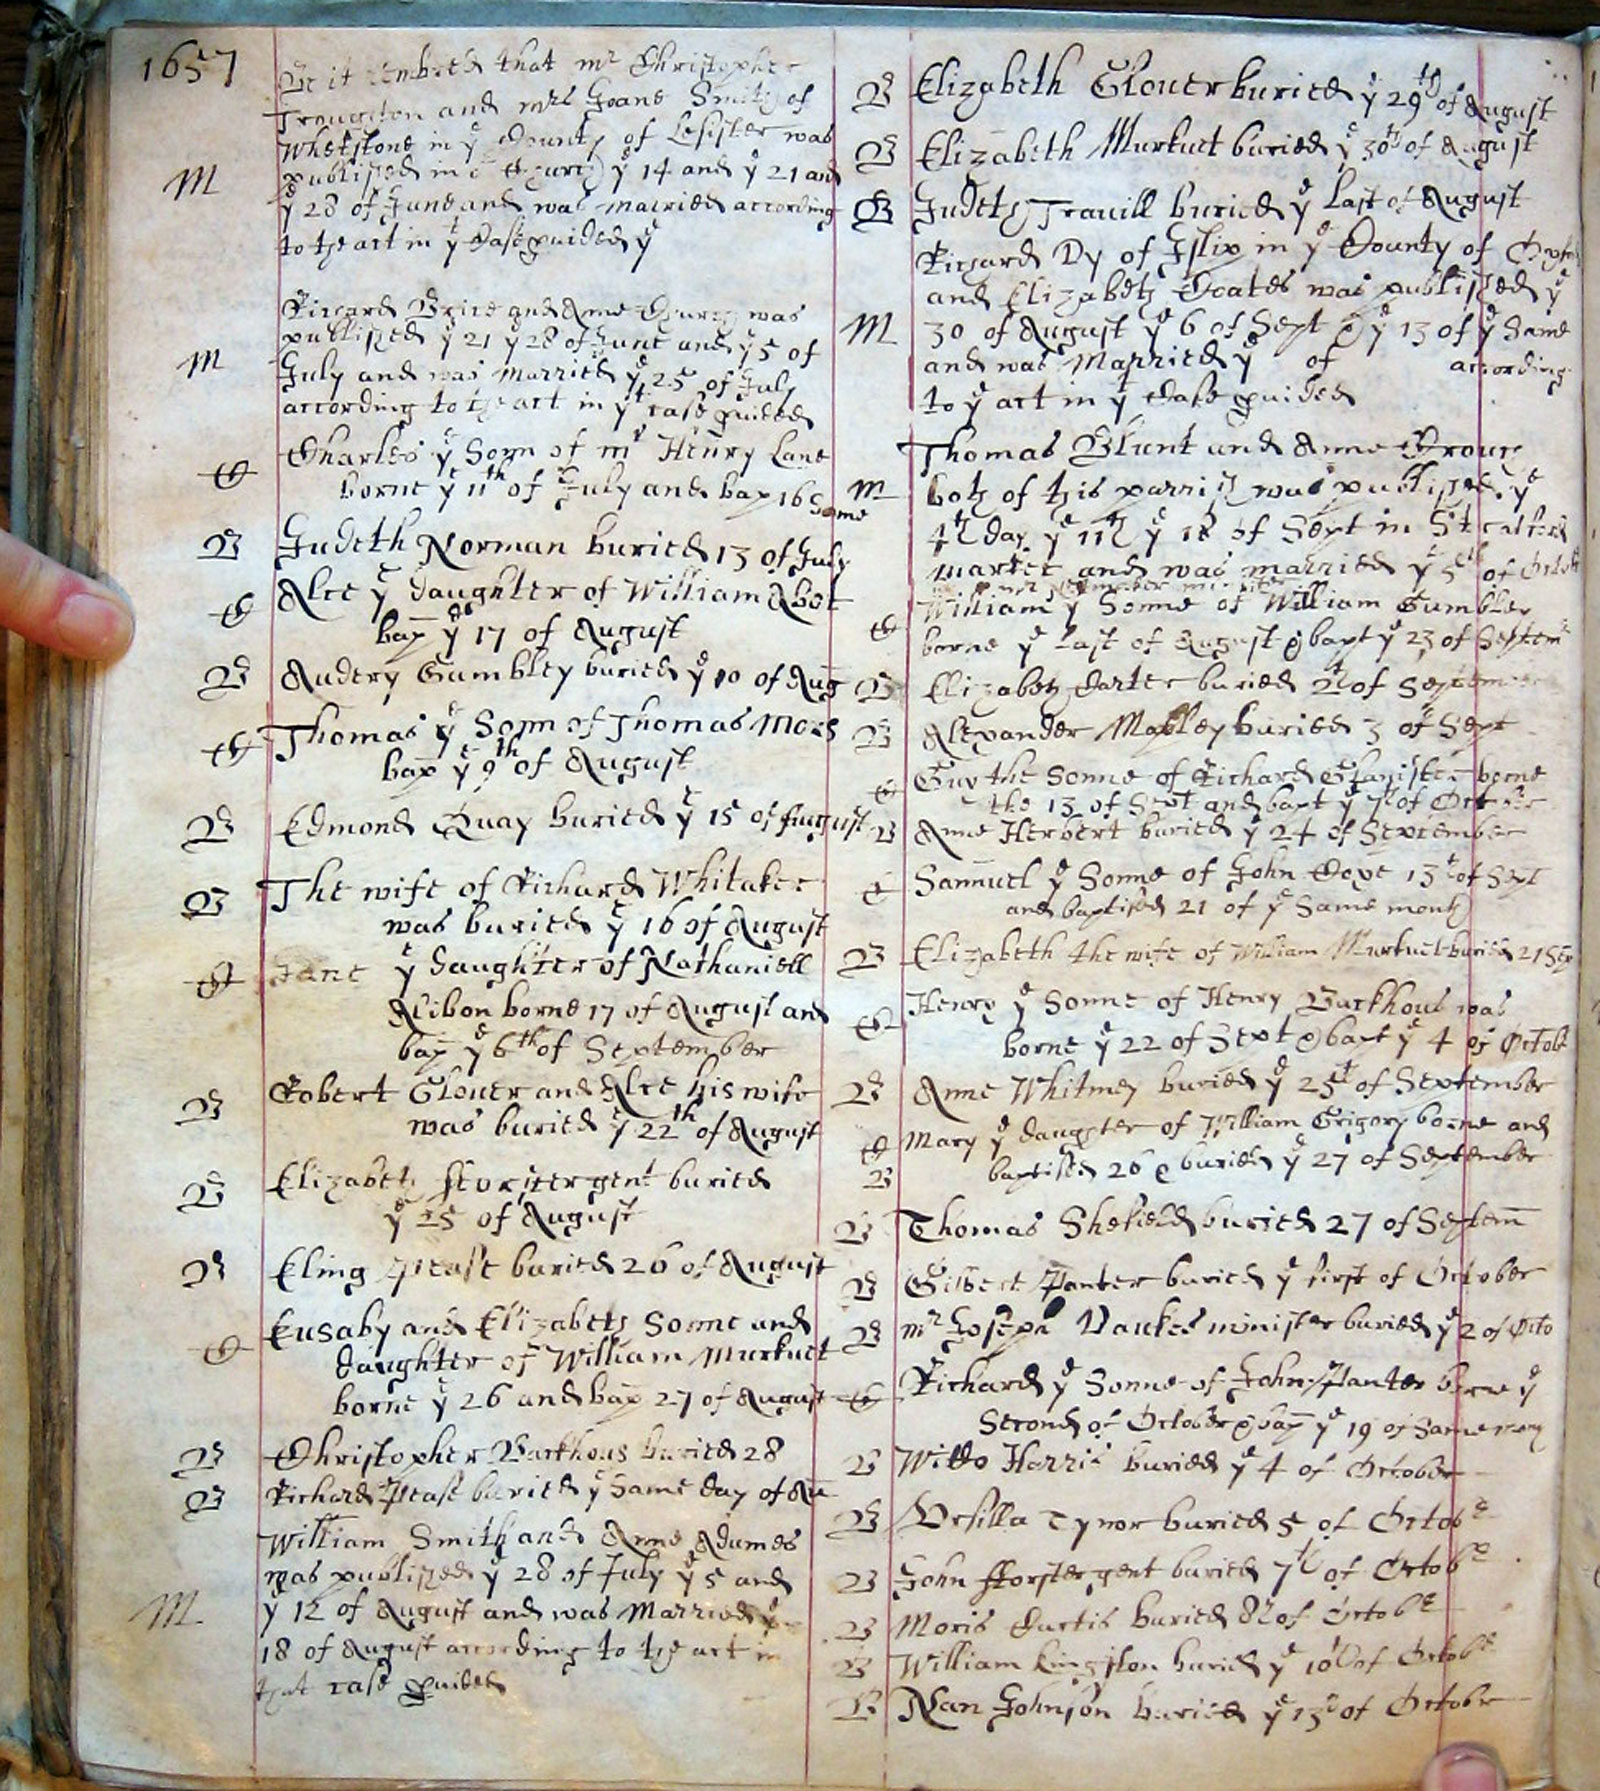 1657
Be it rembred that mr Christopher
Troughton and mrs Joane Smith of
Whetstone in ye County of Lesister was
M
published in ye Church ye 14 and ye 21 and
ye 28 of June and was married according
to the act in yt Case pvided ye
Richard Brice and Anne Church was
published ye 21 ye 28 of June and ye 5 of
M
July and was married ye 25 of July
according to the act in yt case pvided
C
Charles ye Sonn of mr Henry Lane
borne ye 11th of July and bap 16 Same
B
Judeth Norman buried 13 of July
C
Alce ye daughter of William Abot
bap ye 17 of August
B
Audery Gumbley buried ye 10 of Aug
C
Thomas ye Sonn of Thomas Mors
bap ye 9th of August
B
Edmond Quay buried ye 15 of August
B
The wife of Richard Whitaker
was buried ye 16 of August
C
Jane ye daughter of Nathaniell
Alibon borne 17 of August and
bap ye 6th of September
B
Robert Glover and Alce his wife
was buried ye 22th of August
B
Elizabeth fforster gent buried
ye 25 of August
B
Eling Pease buried 26 of August
C
Eusaby and Elizabeth Sonne and
daughter of William Murkuet
borne ye 26 and bap 27 of August
B
Christopher Barkhous buried 28
B
Richard Pease buried ye Same day of Au
William Smith and Anne Adames
was published ye 28 of July ye 5 and
M
ye 12 of August and was Married ye
18 of August according to the act in
that case pvided
B
Elizabeth Glouer buried ye 29th of August
B
Elizabeth Murkuet buried ye 30th of August
B
Judeth Travill buried ye Last of August
Richard Dy of Islip in ye County of
and Elizabeth Coates was published ye
M
30 of August ye 6 of Sept & ye 13 of ye Same
and was Married ye of according
to ye act in yt Case pvided
Thomas Blunt and Anne Crouch
M
both of this parrish was published ye
4th day ye 11th ye 18 of Sept in
market and was married ye 5th of Octob
C
William ye Sonne of William Gumbley
borne ye last of August & bapt ye 23 of Septem
B
Elizabeth Carter buried 2th of September
B
Alexander Mabley buried 3 of Sept
C
Guy the Sonne of Richard borne
the 13 of Sept and bapt ye 7th of October
B
Anne Herbert buried ye 24 of September
C
Sammuel ye Sonne of John Cope 13th of Sept
and baptised 21 of ye Same month
B
Elizabeth the wife of William Murkuet buried 21 Sep
C
Henry ye Sonne of Henry Barkhous was
borne ye 22 of Sept & bapt ye 4 of Octob
B
Anne Whitney buried ye 25t of September
C
Mary ye daughter of William Grigory borne and
B
baptised 26 & buried ye 27 of September
B
Thomas Shefield buried 27 of Septem
B
Gilbert Panter buried ye first of October
B
mr Joseph Bankes minister buried ye 2 of Octo
C
Richard ye Sonne of John Panter borne ye
Second of October & bap ye 19 of Same
B
Harris buried ye 4 of October
B
Vrsilla Tynor buried 5 of Octobr
B
John fforster gent buried 7th of Octobr
B
Moris Curtis buried 8th of Octobr
B
William Kingston buried ye 10th of Octobr
B
Nan Johnson buried ye 13th of October